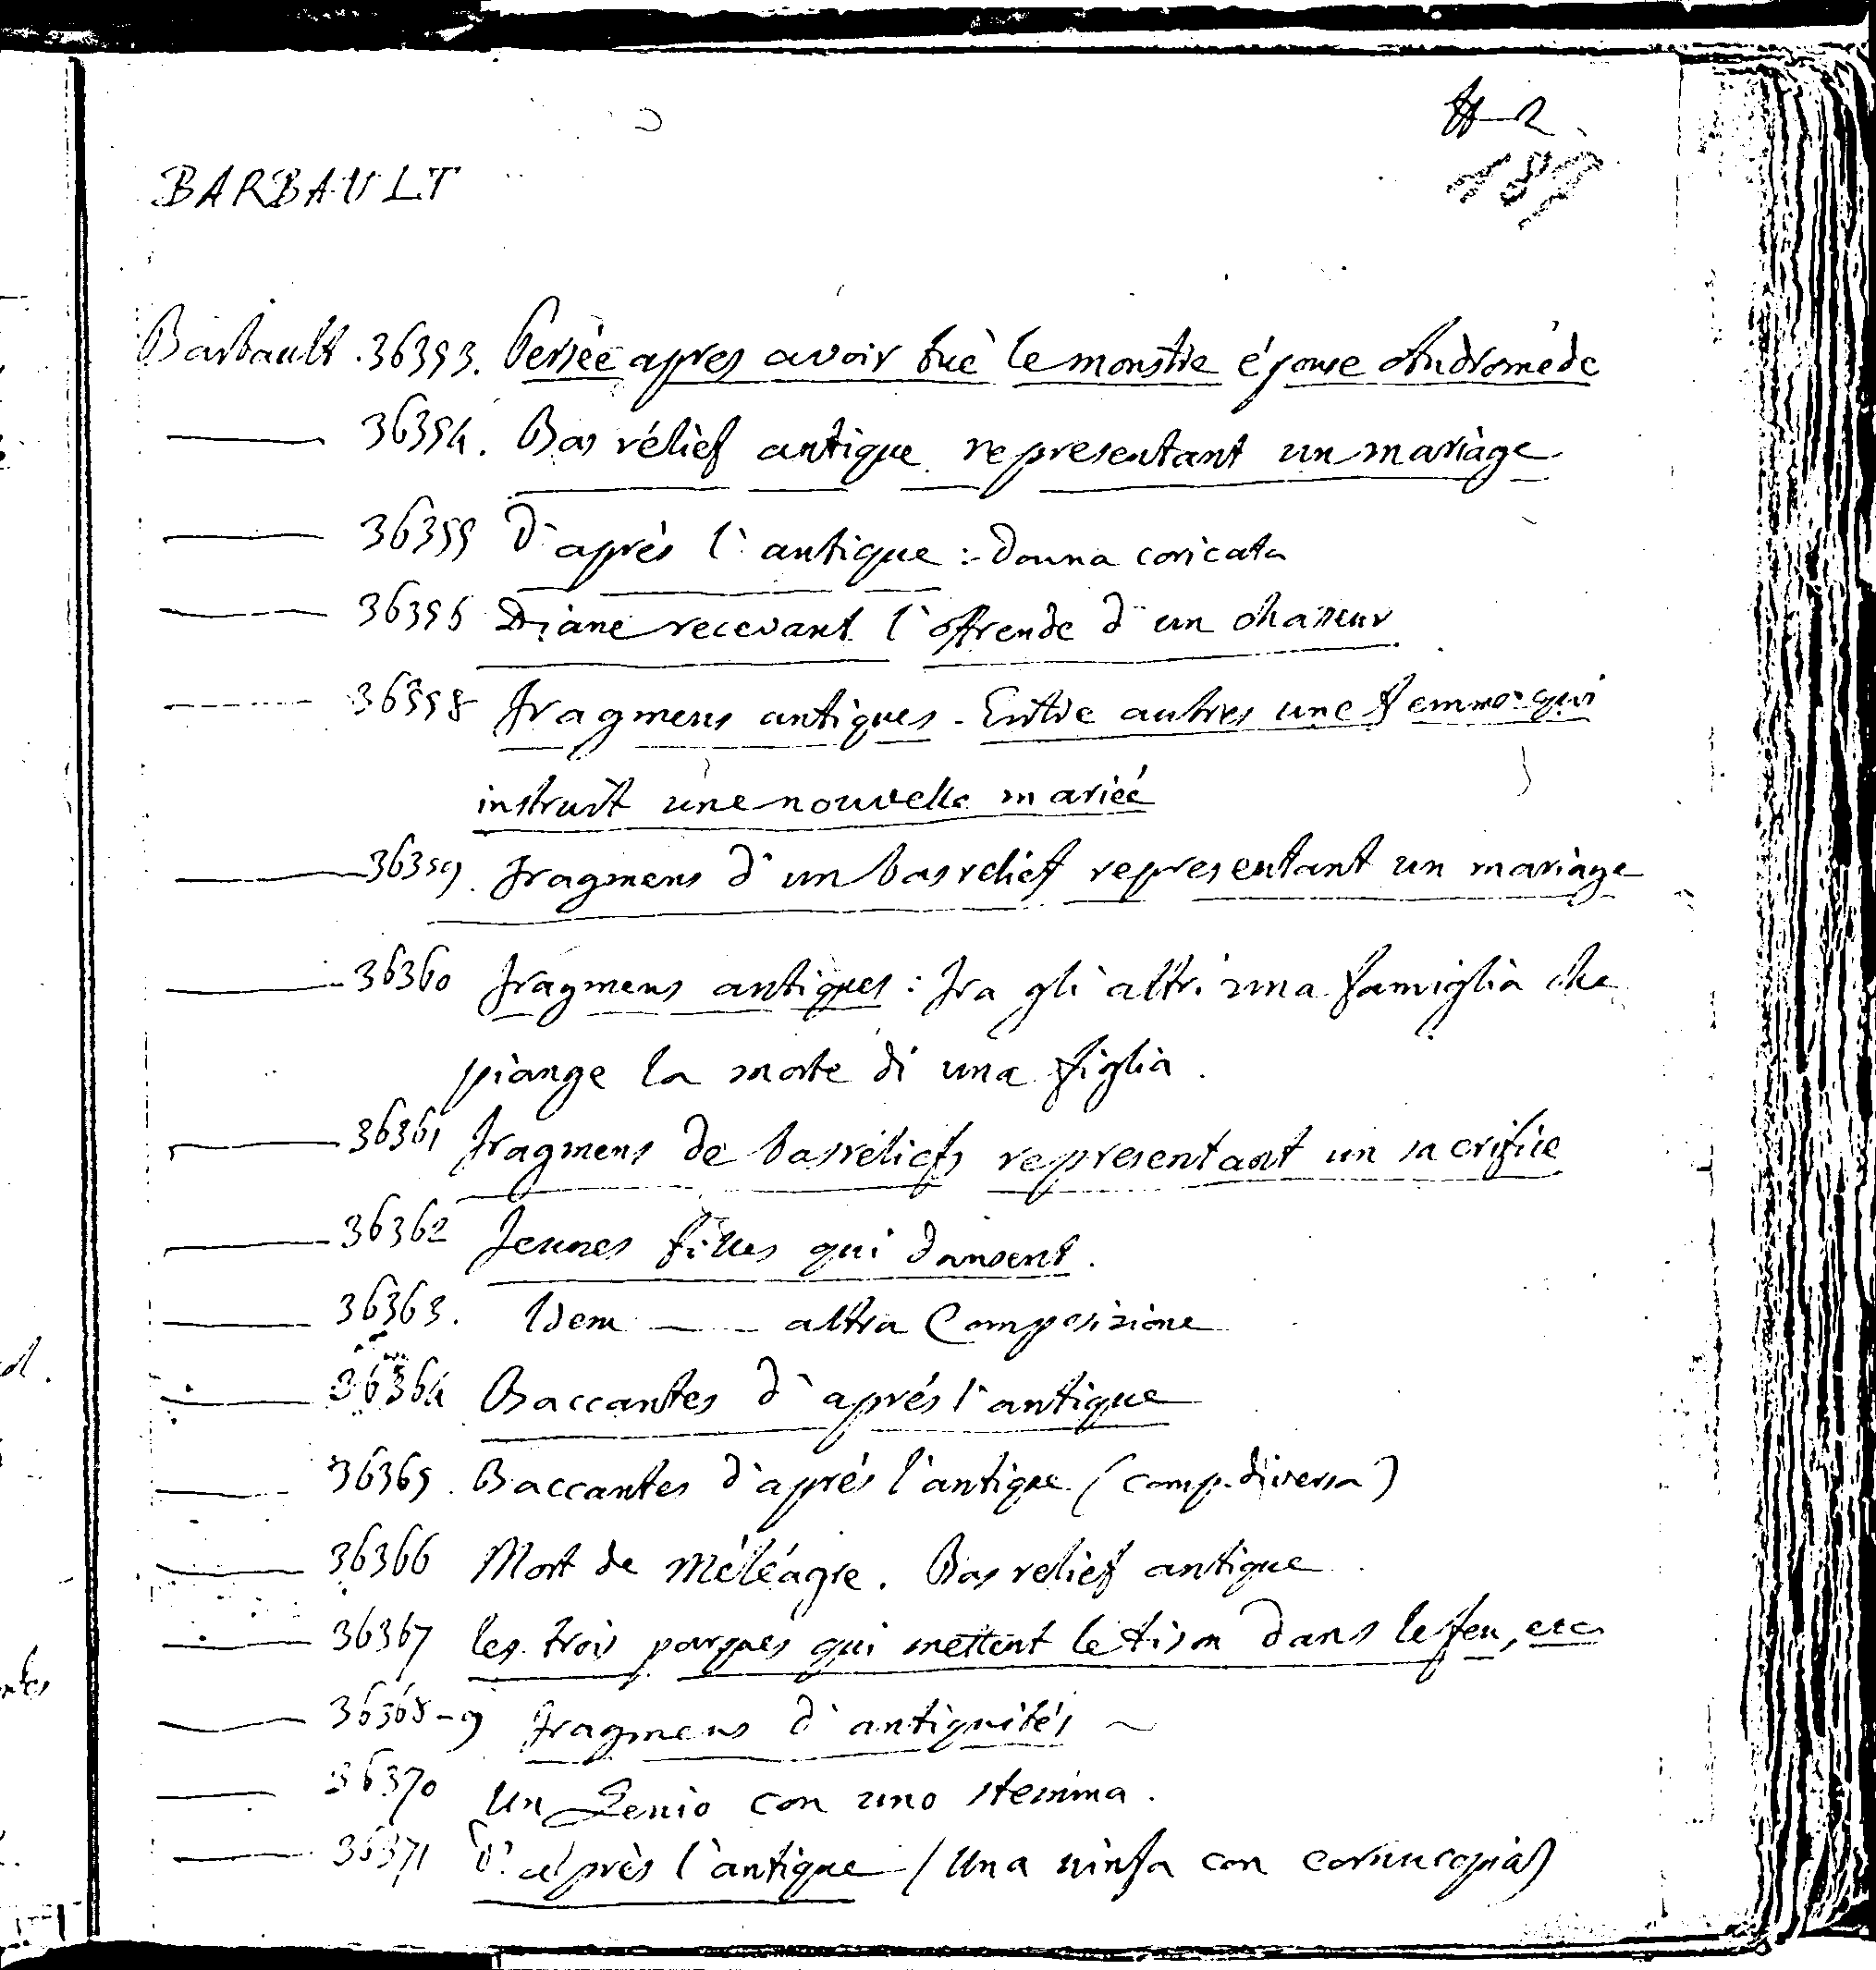 187
BARBAULT
Barbault. 36353. Persée apres avoir tué le monstre épouse Andromède
36354. Bas rélief antique representant un mariage
36355 D'aprés l'antique: Donna coricata
36356 Diane recevant l'offrende d'un chasseur
36358 Fragmens antiques - Entre autres une femme qui
instruit une nouvelle mariée
36359. Fragmens d'un bas relief representant un mariage
36360 Fragmens antiques: Fra gli altri una famiglia che
piange la morte di una figlia.
36361 Fragmens de basréliefs representant un sacrifice
36362 Jeunes filles qui dansent.
36363. Idem — altra Composizione
36364 Baccantes d'aprés l'antique
36365. Baccantes d'aprés l'antique (comp. diversa)
36366 Mort de Méléagre. Bas relief antique
36367 les trois parques qui mettent le tison dans le feu, etc.
36368-9 Fragmens d'antiquités
36370 Un Genio con uno stemma.
36371 D'après l'antique (Una ninfa con cornucopia)